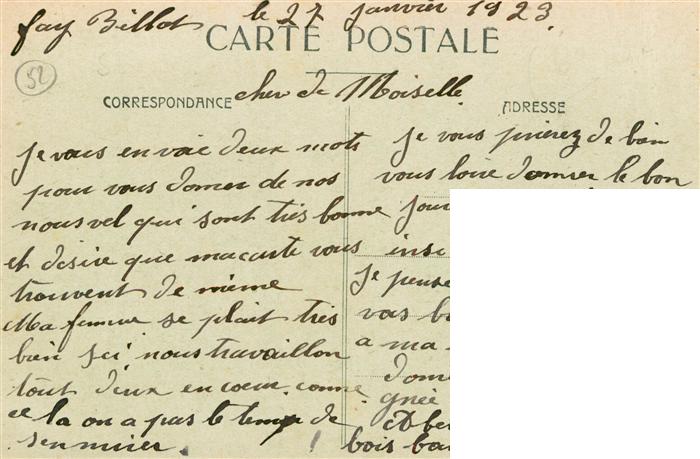 fay Billot le 27 janvier 1923
CARTE POSTALE
52
cher de Moiselle
CORRESPONDANCE
je vous envoie deux mots
pour vous donner de nos
nousvel qui sont très bonne
et désire que ma carte vous
trouvent de même
Ma femme se plait très
bien ici nous travaillon
tout deux en coeur. comme
ce la on a pas le temp de
senmuier.
ADRESSE
Je vous prierez de bien
vous loire donner le bon
jour
inse
Je pense
vas b
a ma
dom
gnée
bois ba